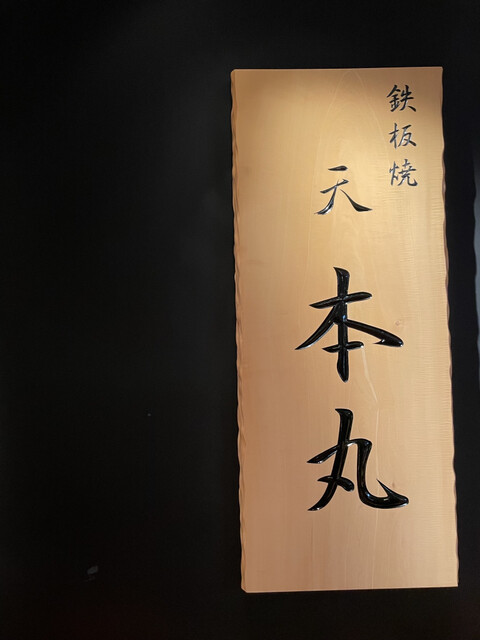 鉄板焼
天本丸